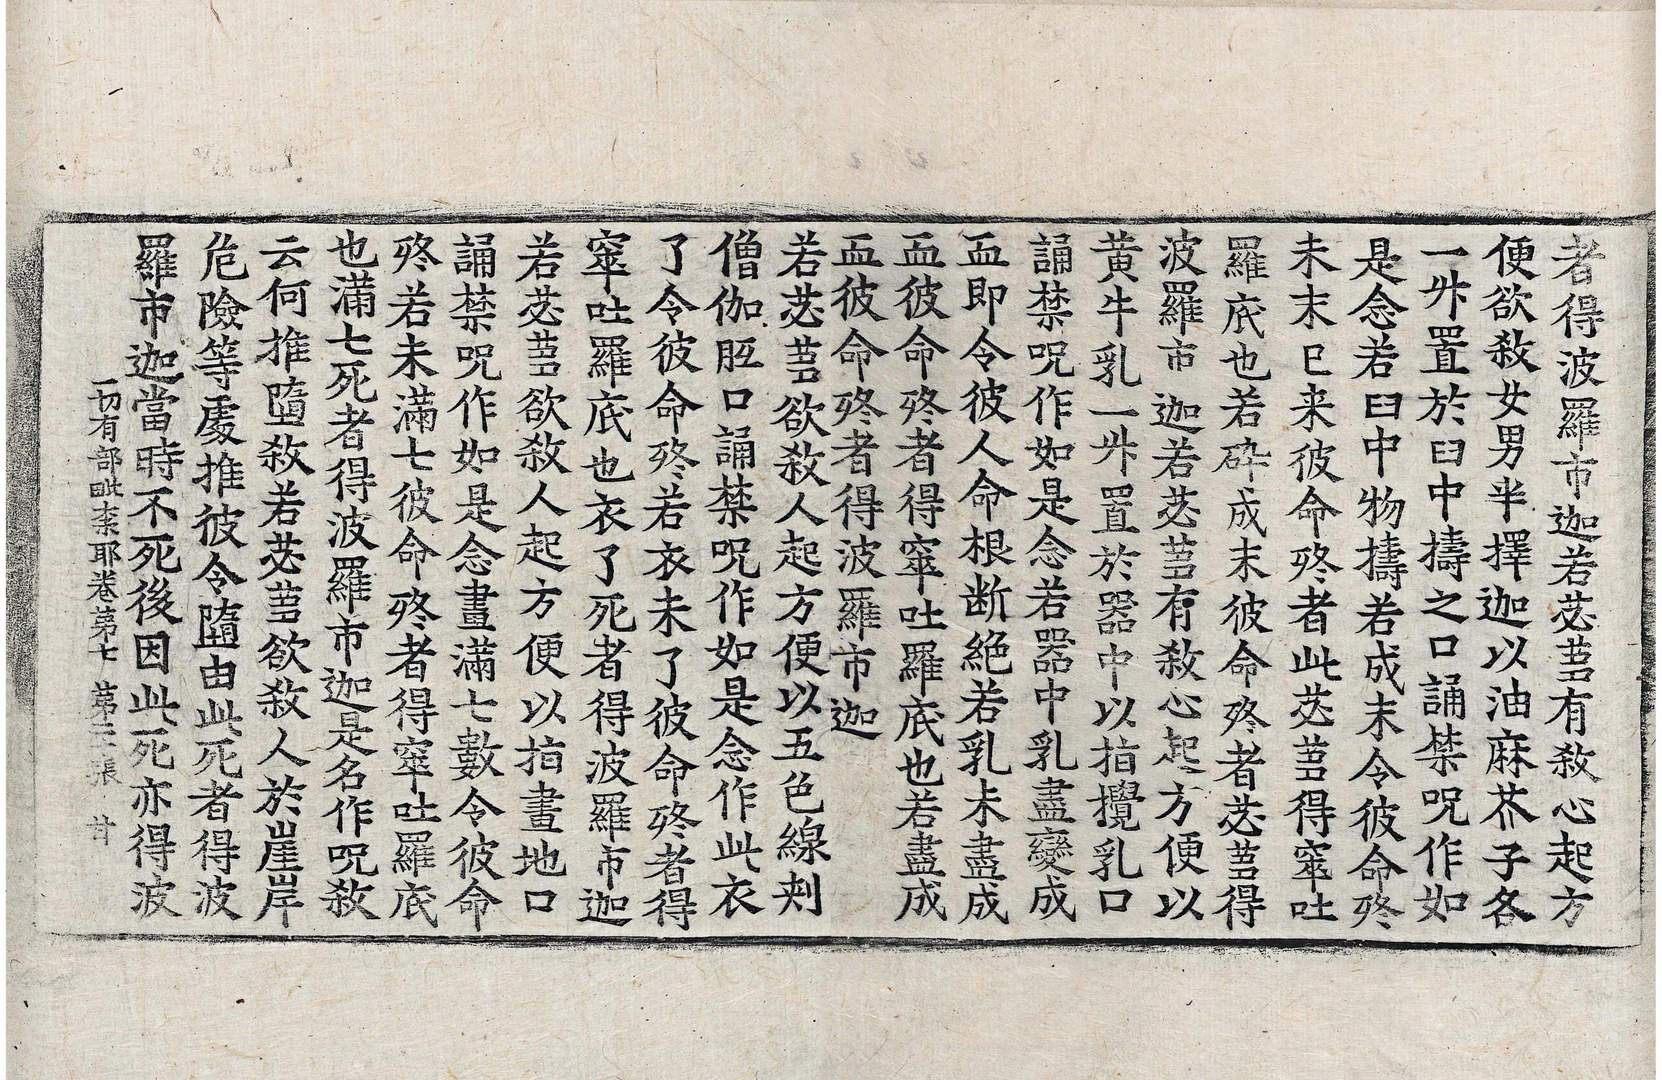 者得波羅市迦若苾芻有殺心起方
便欲殺女男半擇迦以油麻芥子各
一升置於臼中擣之口誦禁呪作如
是念若臼中物擣若成末令彼命終
未末已来彼命終者此苾芻得窣吐
羅底也若碎成末彼命終者苾芻得
波羅市迦若苾芻有殺心起方便以
黄牛乳一升置於器中以指攪乳口
誦禁呪作如是念若器中乳盡變成
血即令彼人命根断絶若乳未盡成
血彼命終者得窣吐羅底也若盡成
血彼命終者得波羅市迦
若苾芻欲殺人起方便以五色線刾
僧伽胝口誦禁呪作如是念作此衣
了令彼命終若衣未了彼命終者得
窣吐羅底也衣了死者得波羅市迦
若苾芻欲殺人起方便以指畫地口
誦禁呪作如是念畫滿七數令彼命
終若未滿七彼命終者得窣吐羅底
也滿七死者得波羅市迦是名作呪殺
云何推墮殺若苾芻欲殺人於崖岸
危險等處推彼令墮由此死者得波
羅市迦當時不死後因此死亦得波
一切有部毗柰耶卷苐七 苐二十張 甘